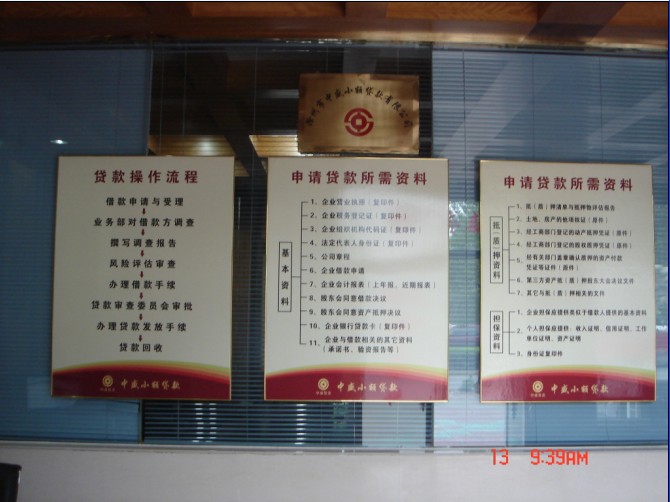 州市中盛小额贷款有限公司
贷款操作流程
借款申请与受理
业务部对借款方调查
撰写调查报告
风险评估审查
办理借款手续
贷款审查委员会审批
办理贷款发放手续
贷款回收
中盛小额贷款
申请贷款所需资料
基本资料
1、企业营业执照（复印件）
2、企业税务登记证（复印件）
3、企业组织机构代码证（复印件）
4、法定代表人身份证（复印件）
5、公司章程
6、企业借款申请
7、企业会计报表（上年报、近期报表）
8、股东会同意借款决议
9、股东会同意资产抵押决议
10、企业银行贷款卡（复印件）
11、企业与借款相关的其它资料
（承诺书、验资报告等）
中盛小额贷款
申请贷款所需资料
抵（质）押资料
1、抵（质）押清单与抵押物评估报告
2、土地、房产的他项权证（原件）
3、经工商部门登记的动产抵押凭证（原件）
4、经工商部门登记的股权质押凭证（原件）
5、经有关部门盖章确认质押的资产付款
凭证等证件（原件）
6、第三方资产抵（质）押股东大会决议文件
7、其它与抵（质）押相关的文件
担保资料
1、企业担保应提供类似于借款人提供的基本资料
2、个人担保应提供：收入证明、信用证明、工作
单位证明、资产证明
3、身份证复印件
中盛小额贷款
13 9:39AM